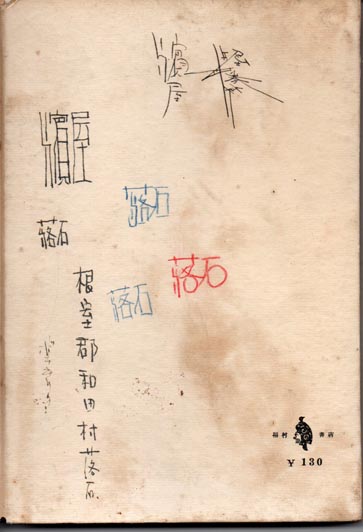 濱屋
濱屋
落石
落石
落石
落石
根室郡和田村落石
福村書店
¥130